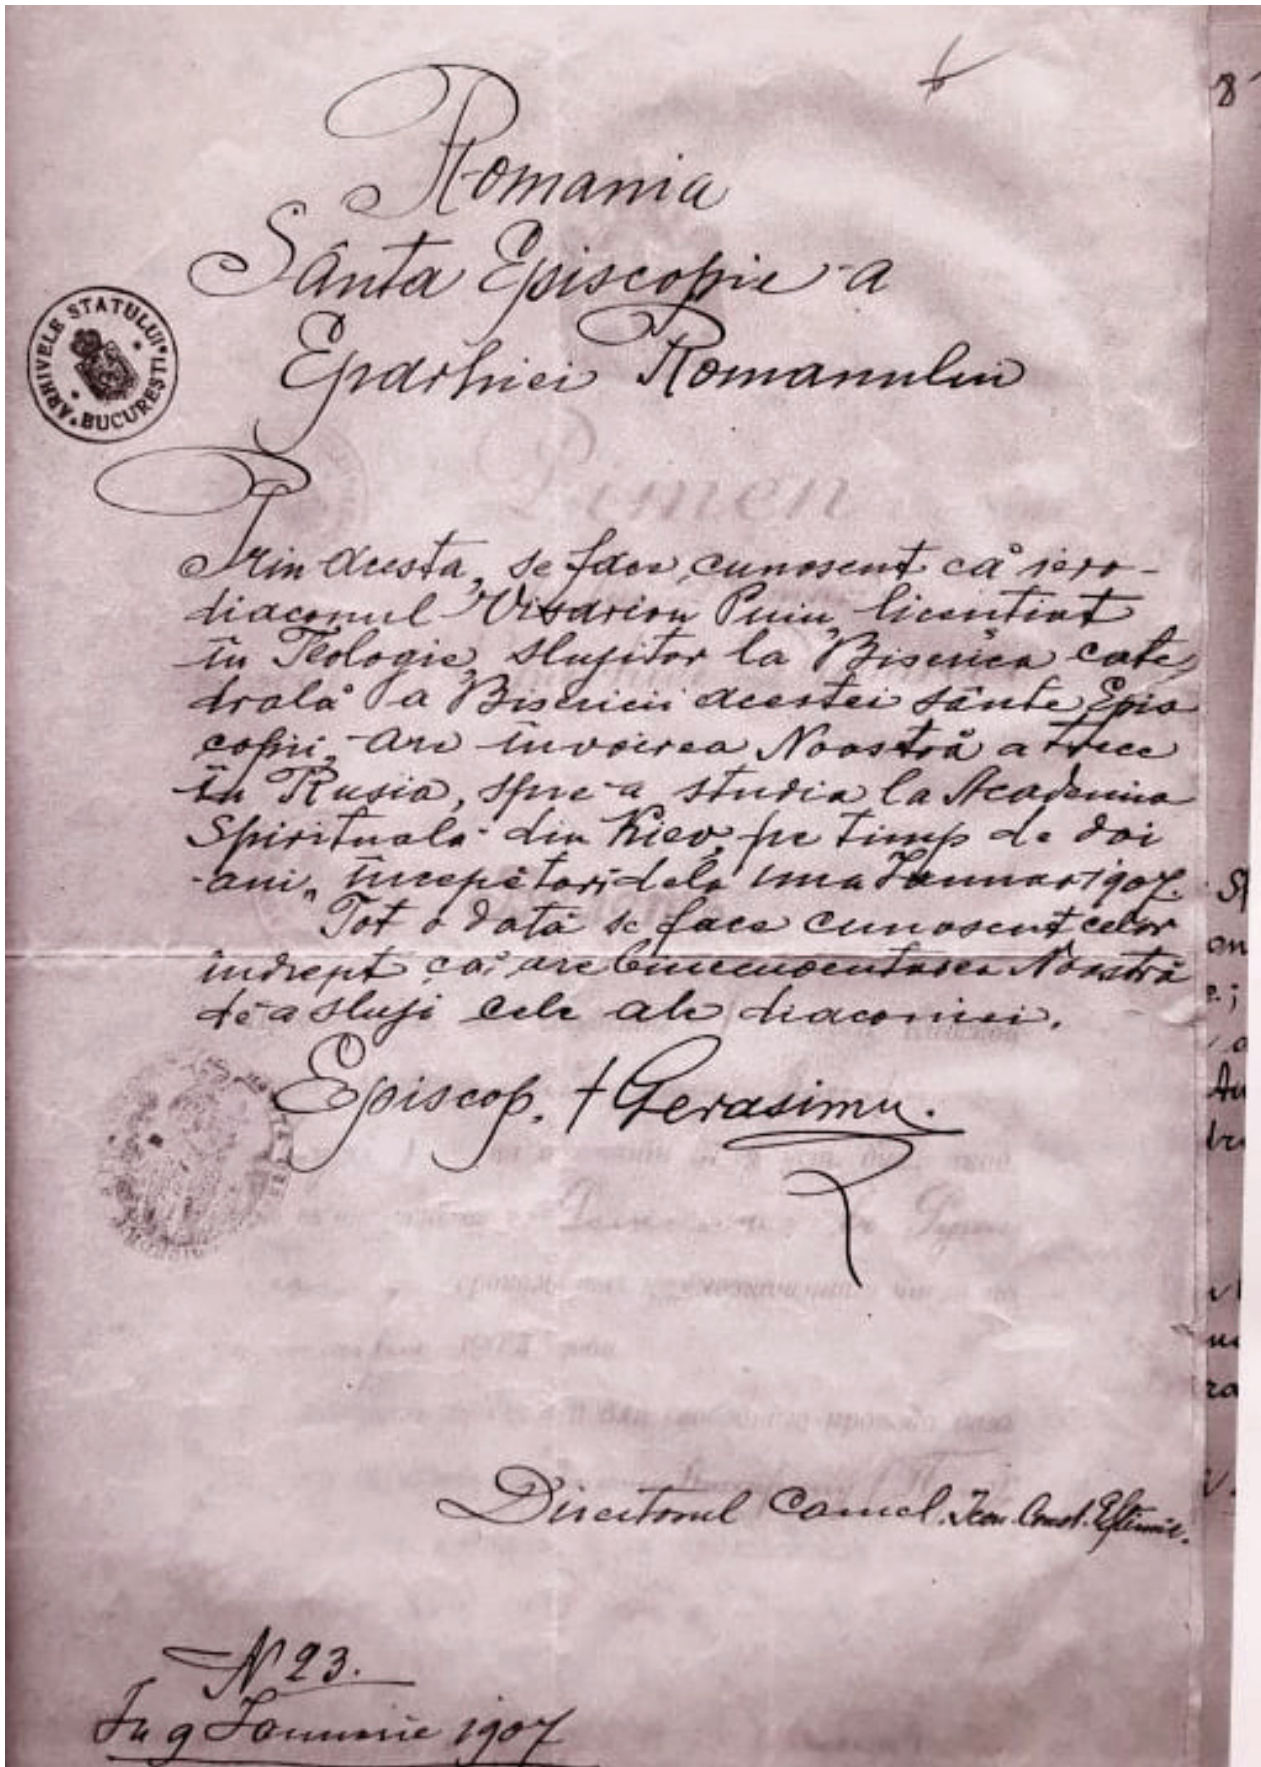 8
Romania
Sânta Episcopie a
Eparhiei Romanului
ARHIVELE STATULUI BUCURESTI
Pimen
Prin acesta, se face cunoscut că iero-
diaconul Visarion Puiu, licentiat
în Teologie, slujitor la Biserica cate
drală a Bisericii acestei sânte Epis
copii, are învoirea Noastră a trece
în Rusia, spre a studia la Academia
Spirituală din Kiev, pe timp de doi
ani, începători dela una Ianuar 1907.
Tot o dată se face cunoscut celor
îndrept, că are binecuventarea Noastră
de a sluji cele ale diaconiei.
Episcop. † Gerasimu.
Directorul Cancel. Icon. Const. Eftimie.
N 23.
In 9 Ianuarie 1907